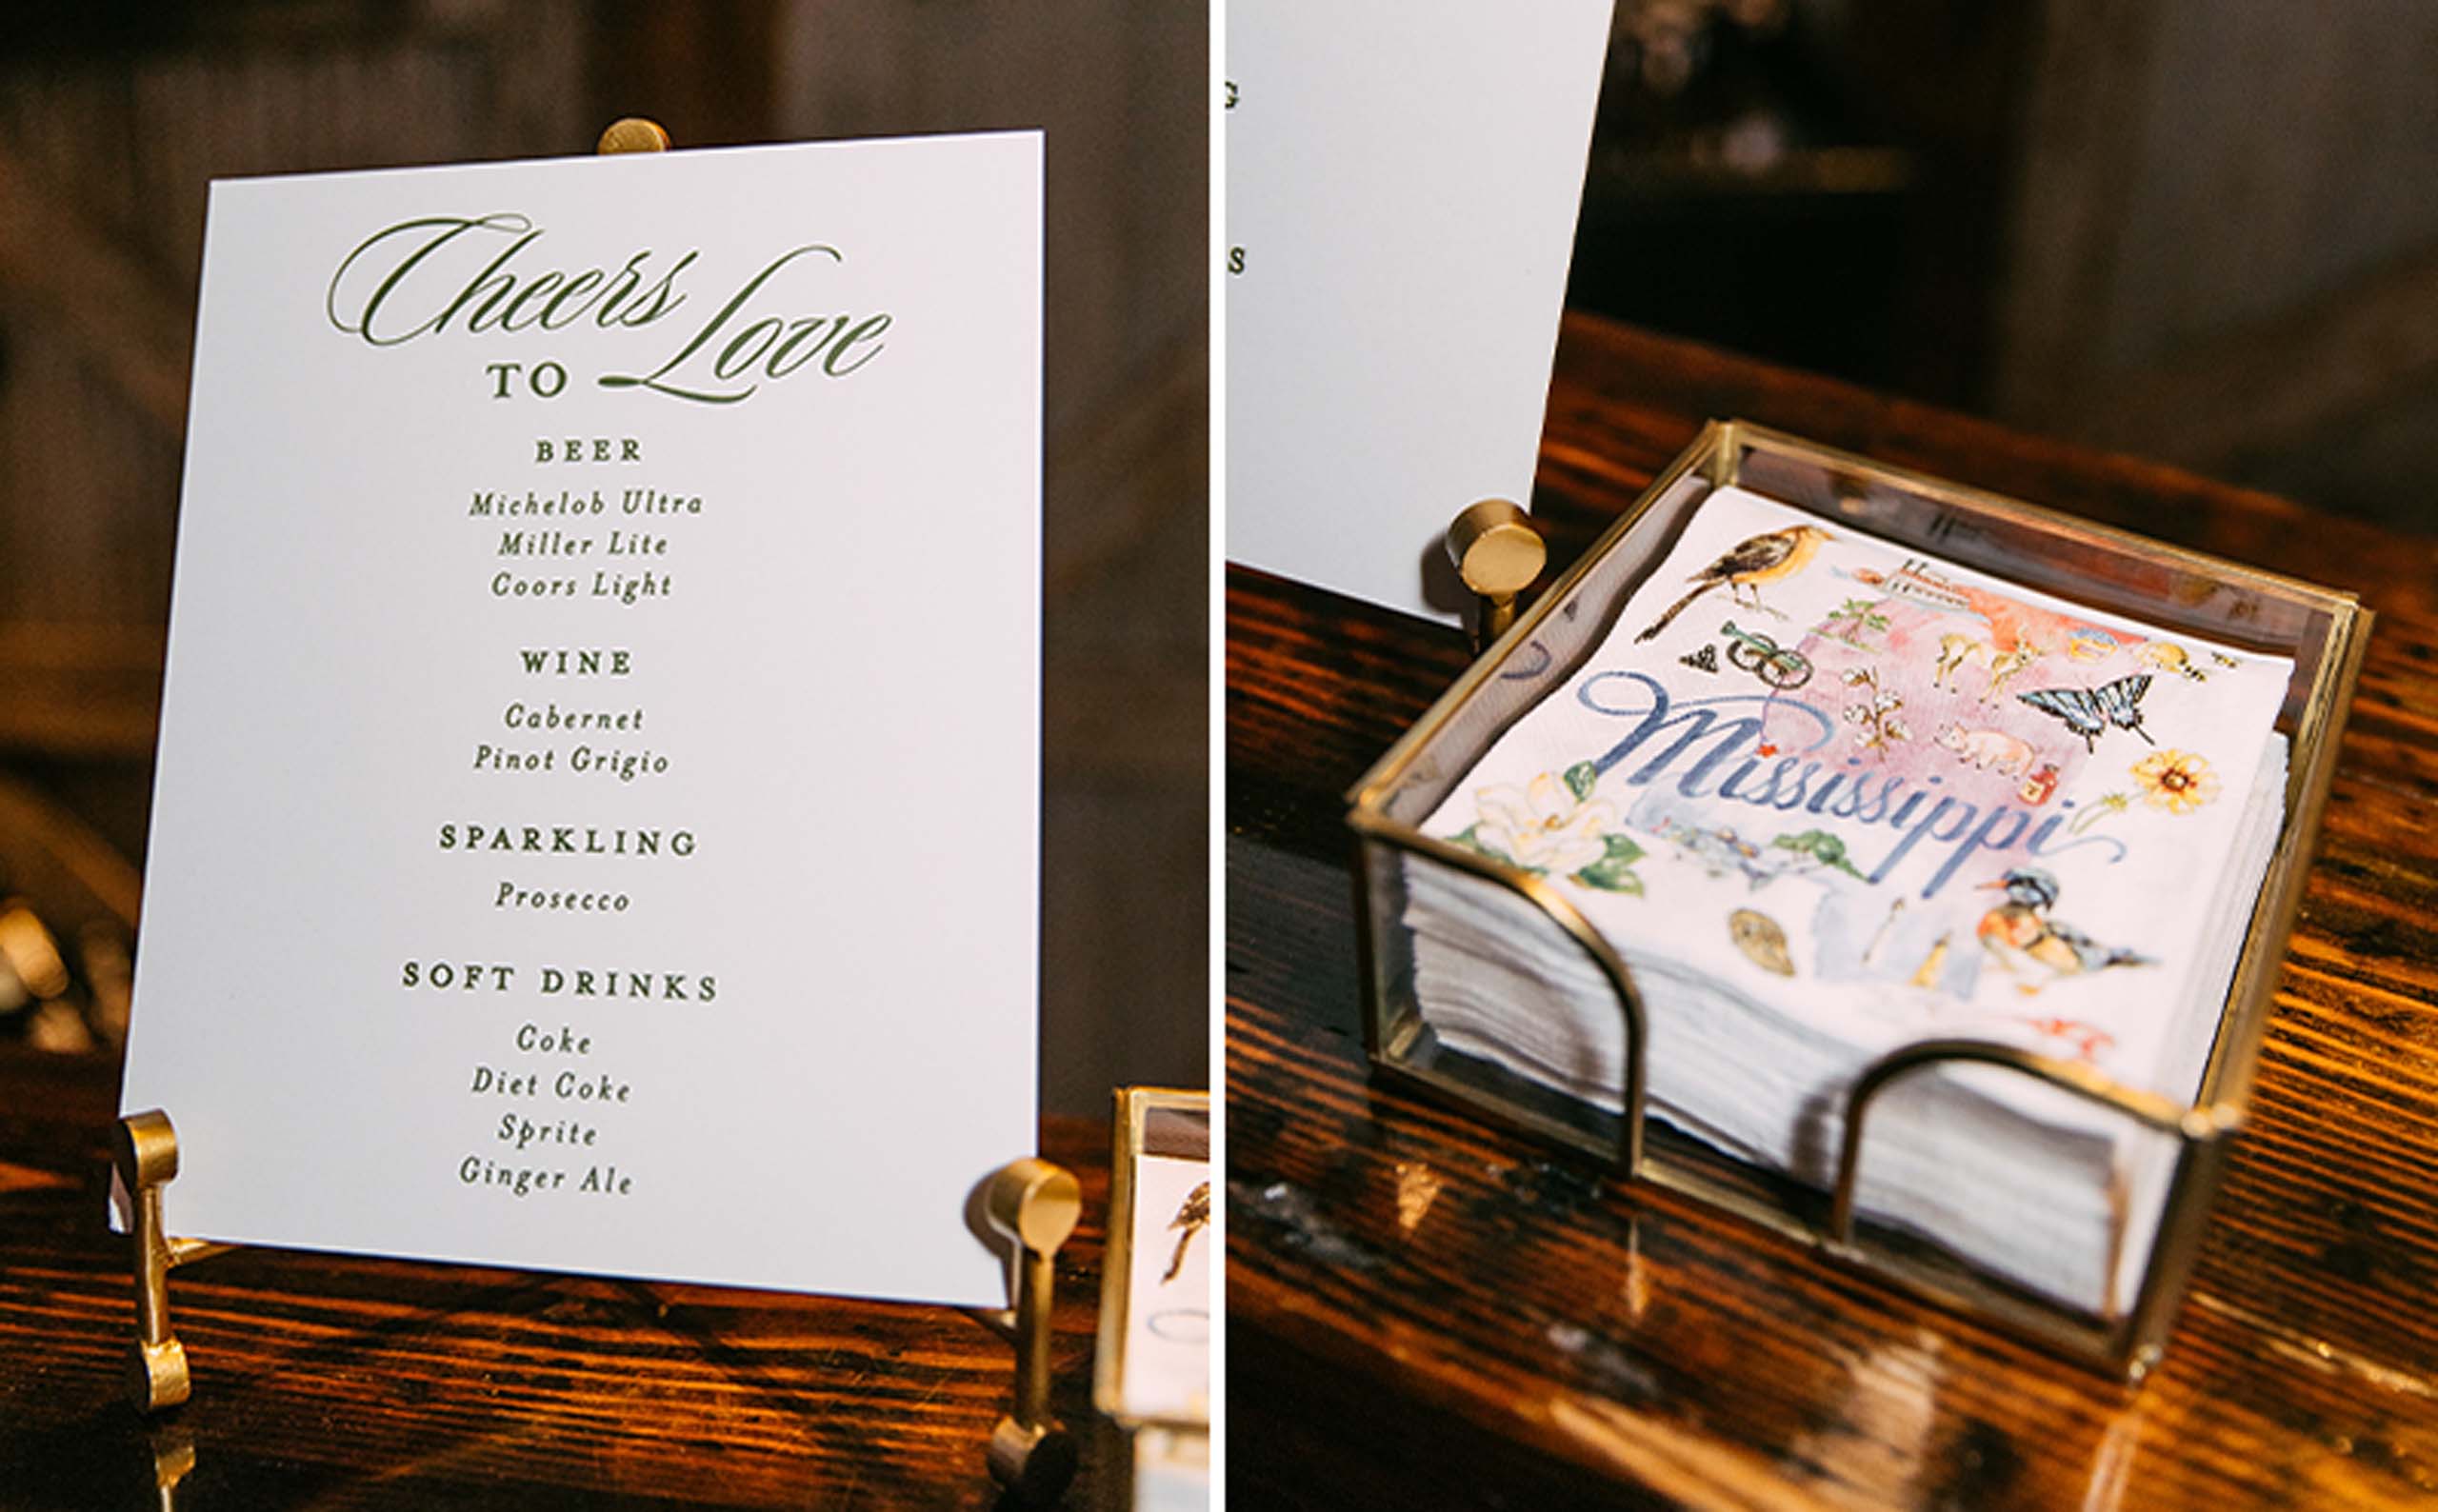 Cheers
TO Love
BEER
Michelob Ultra
Miller Lite
Coors Light
WINE
Cabernet
Pinot Grigio
SPARKLING
Prosecco
SOFT DRINKS
Coke
Diet Coke
Sprite
Ginger Ale
G
S
Mississippi